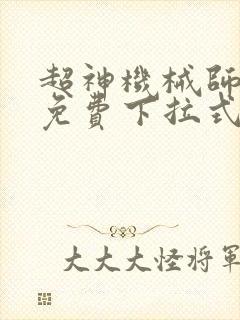 超神機械師
免費下拉式
大大大怪将軍